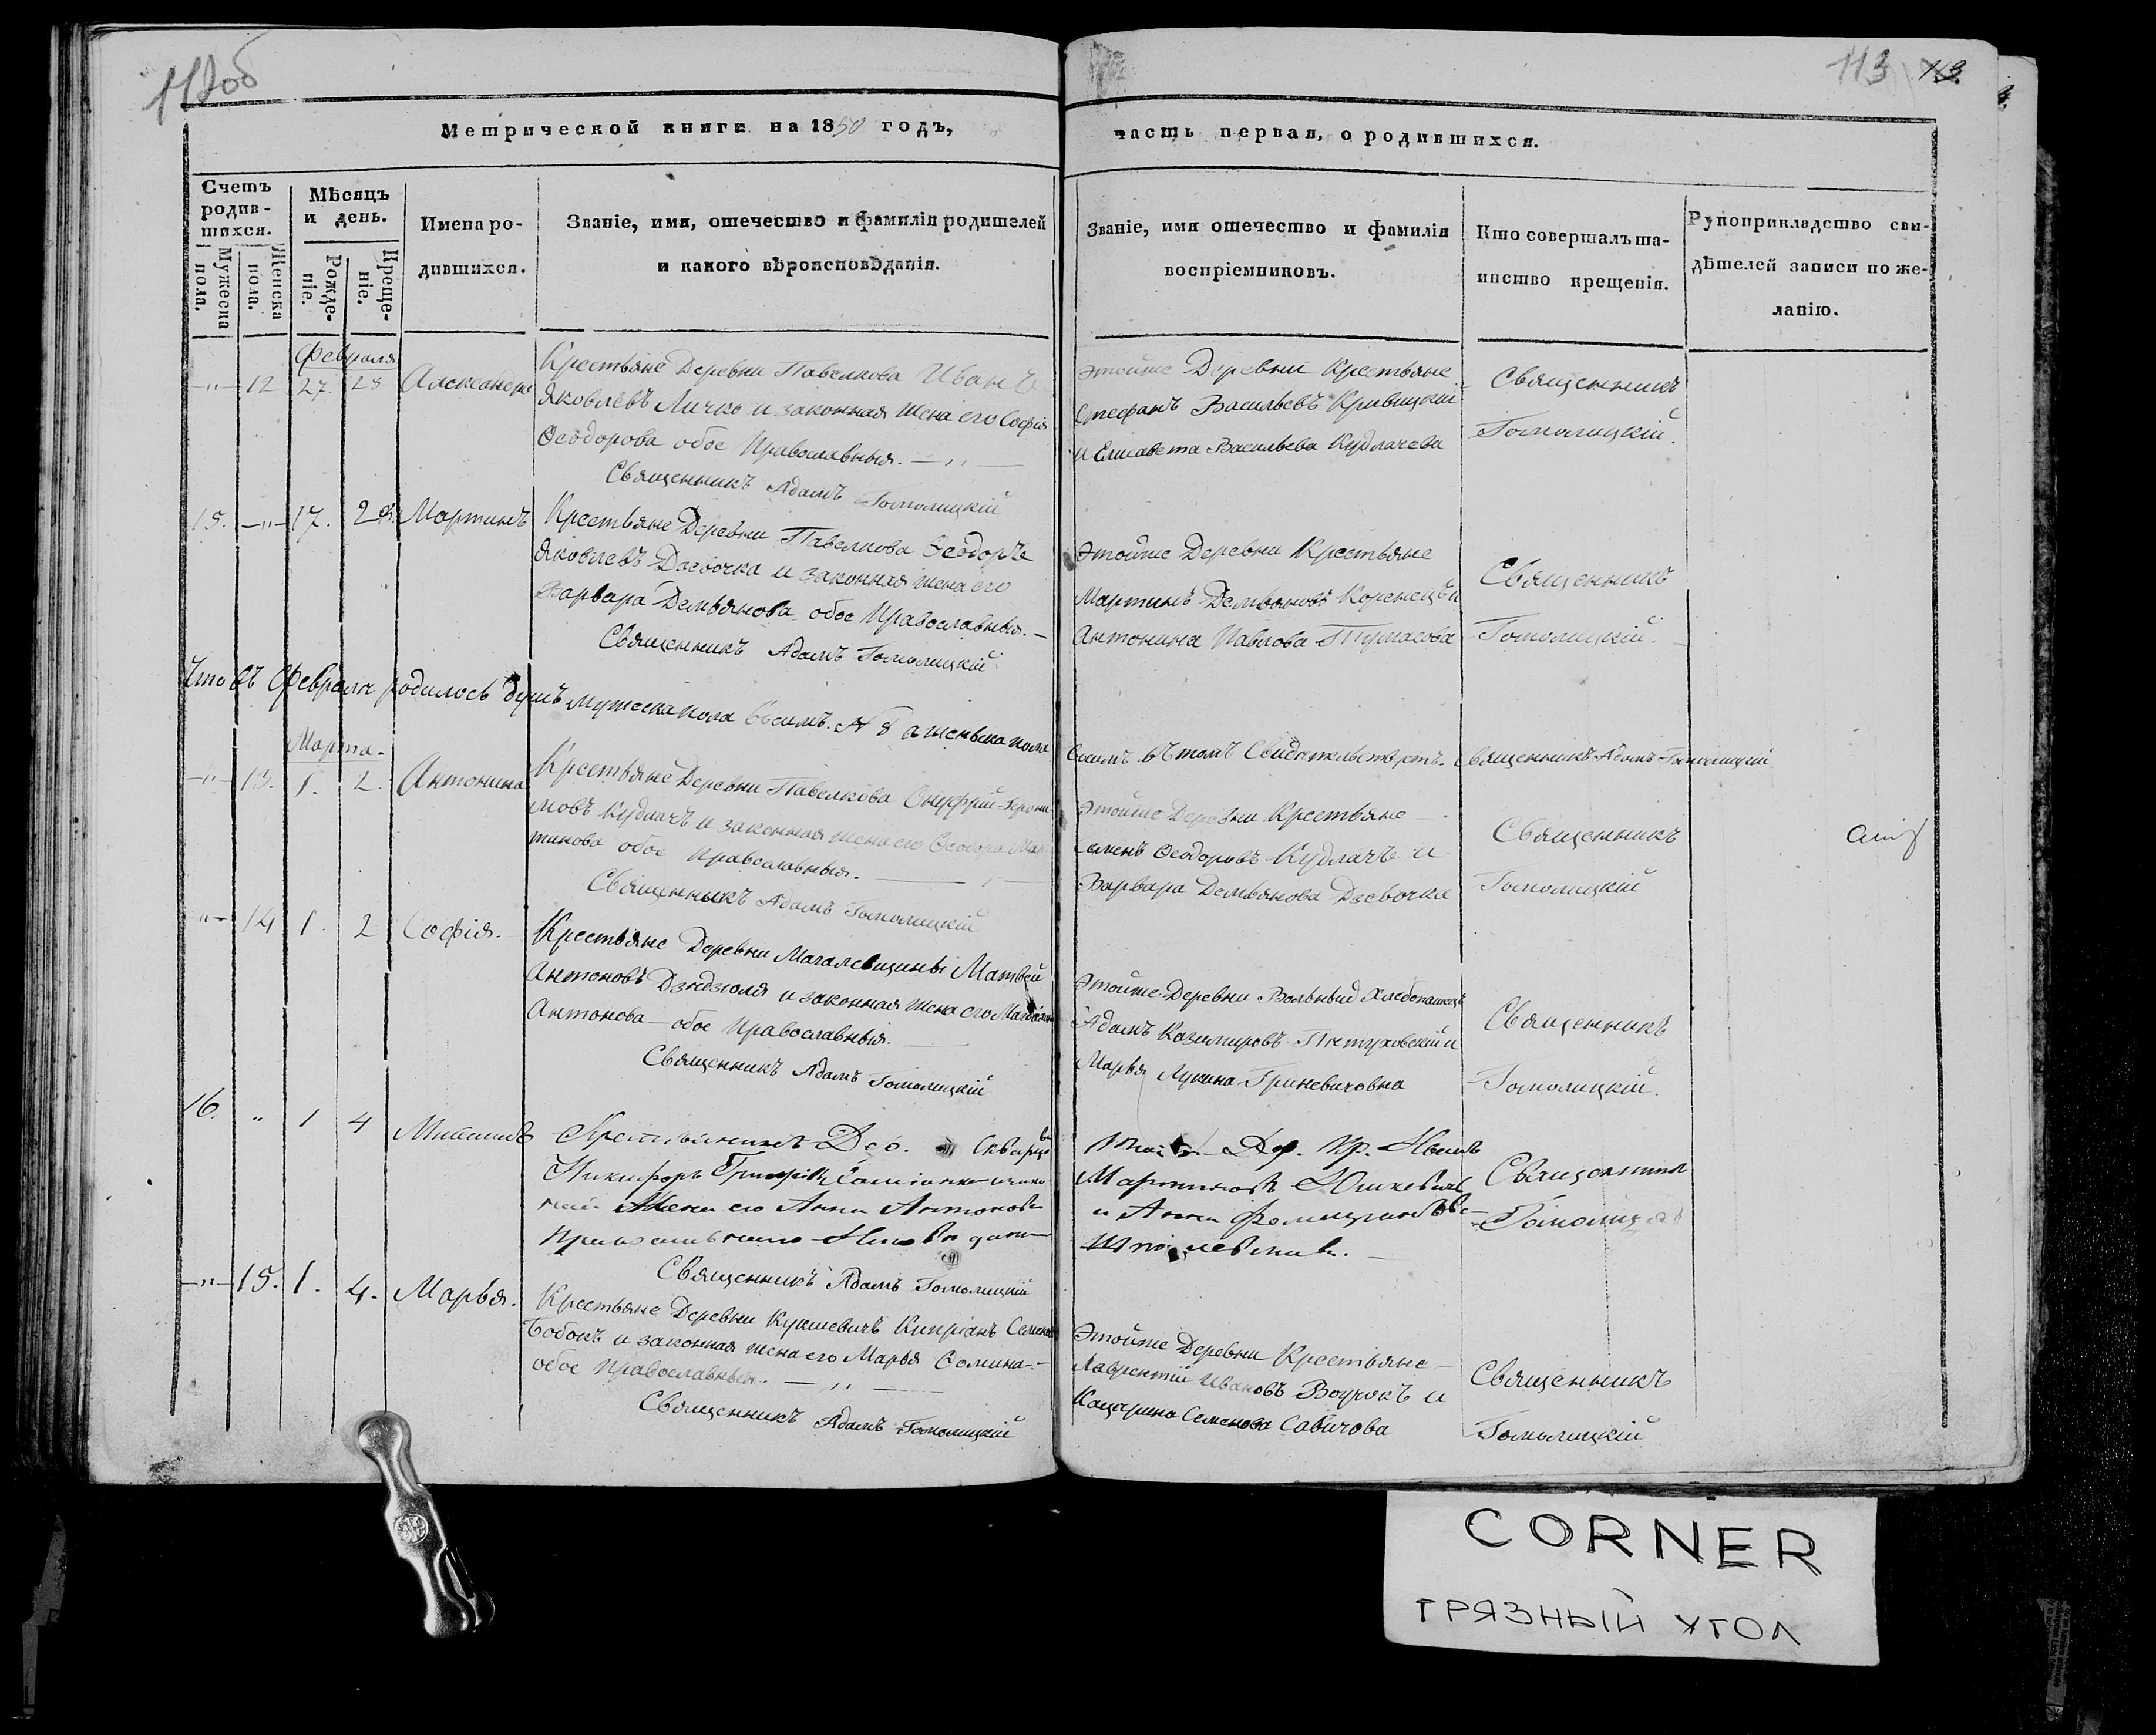 112об
113
Метрической книги на 1850 годъ,
часть первая, о родившихся.
Счетъ родив-шихся.
Мужеска пола.
Женска пола.
Мѣсяцъ и день.
Рожде-ніе.
Креще-ніе.
Имена ро-дившихся.
Званіе, имя, отечество и фамилія родителей
и какого вѣроисповѣданія.
Званіе, имя отечество и фамилія
воспріемниковъ.
Кто совершалъ та-
инство крещенія.
Рукоприкладство сви-
дѣтелей записи по же-
ланію.
Февраля
-"- 12 27. 28 Александра
Крестьяне Деревни Павелкова Иванъ
Яковлевъ Личко и законная жена его Софія
Ѳеодорова обое Православныя. - " -
Священникъ Адамъ Гомолицкій
Этойже Деревни Крестьяне
Стефанъ Васильевъ Кривицкій
и Елисавета Васильева Кудлачева
Священникъ
Гомолицкій.
15. -"- 17. 28. Мартинъ
Крестьяне Деревни Павелкова Ѳеодоръ
Яковлевъ Дзевочка и законная жена его
Варвара Демьянова обое Православныя. -
Священникъ Адамъ Гомолицкій
Этойже Деревни Крестьяне
Мартинъ Демьяновъ Коренецъ и
Антонина Павлова Тумасова
Священникъ
Гомолицкій.
Что въ Февралѣ родилось душъ мужеска пола восимъ. № 8 а женска пола
Священникъ Адамъ Гомолицкій
Марта.
-"- 13. 1. 2. Антонина
Крестьяне Деревни Павелкова Онуфрій Герони-
мовъ Кудлачъ и законная жена его Ѳеодора Мар-
тинова обое Православныя.
Священникъ Адамъ Гомолицкій
Этойже Деревни Крестьяне
Семенъ Ѳеодоровъ Кудлачъ и
Варвара Демьянова Дзевочка
Священникъ
Гомолицкій
-"- 14 1. 2 Софія.
Крестьяне Деревни Магалевщины Матвей
Антоновъ Дзидзюля и законная жена его
Антонова - обое Православныя.
Священникъ Адамъ Гомолицкій
Этойже Деревни Вольный Хлебопашецъ
Адамъ Казимировъ Петуховскій и
Марья Лукина Гриневичовна
Священникъ
Гомолицкій.
16. " 1 4
Дер.
Никифоръ
жена его Анна Антонова
Священникъ Адамъ Гомолицкій
Дер. Кр.
Мартиновъ Юшкевичъ
и Анна
Священникъ
Гомолицкій
-"- 15. 1. 4. Марья.
Крестьяне Деревни Кукшевичъ Кипріанъ Семеновъ
Бобокъ и законная жена его Марья Ѳомина. -
обое Православныя. - " -
Священникъ Адамъ Гомолицкій
Этойже Деревни Крестьяне
Лаврентій Ивановъ Воурокъ и
Кацарина Семенова Савичова
Священникъ
Гомолицкій
CORNER
ГРЯЗНЫЙ УГОЛ